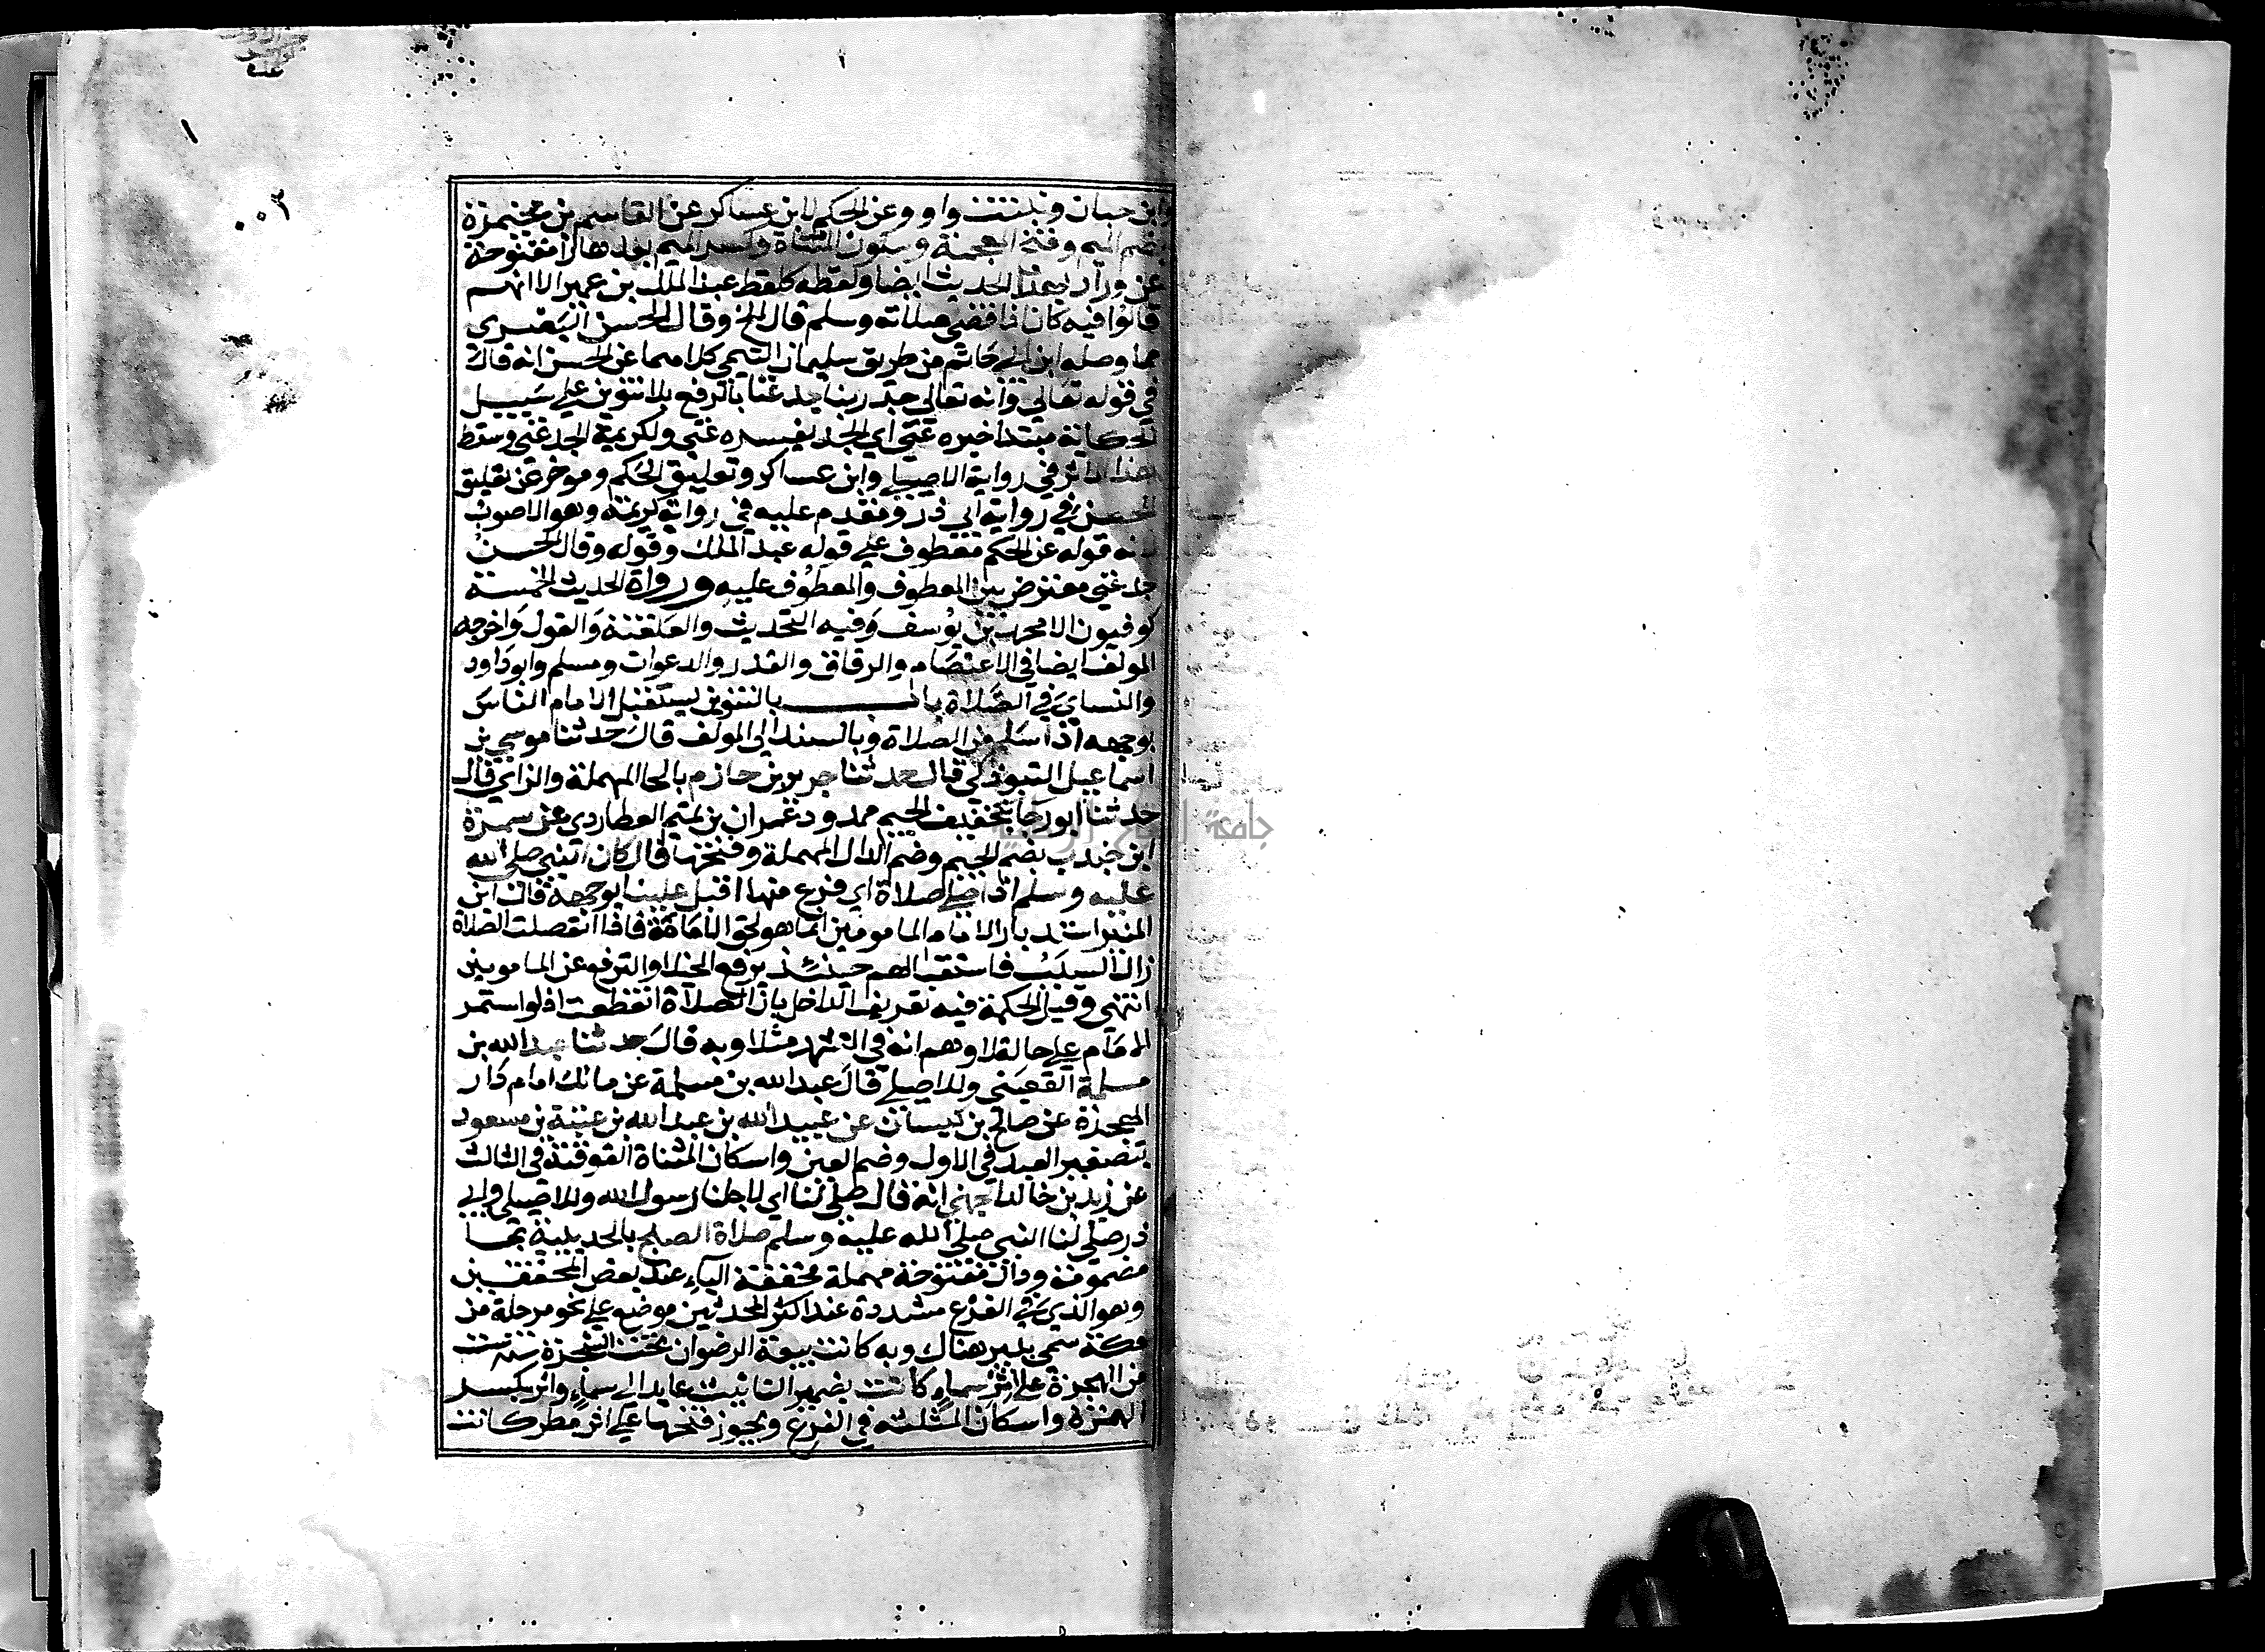 وابن حبان وثبتت واو وعن الحكم لابن عساكر عن القاسم بن مخيمرة
بضم الميم وفتح المعجمة وسكون المثناة وكسر الميم بعدها را مفتوحة
عن وراد بهذا الحديث ايضا ولفظه كلفظ عبد الملك بن عمير الا انهم
قالوا فيه كان اذا قضى صلاته وسلم قال الخ وقال الحسن البصري
مما وصله ابن ابي حاتم من طريق سليمان التيمي كلاهما عن الحسن انه قال
في قوله تعالى وانه تعالى جد ربنا جد غنا بالرفع بلا تنوين على سبيل
الحكاية مبتدا خبره غنى اي الجد يفسره غنى ولكريمة الجد غنى وسقط
هذا الاثر في رواية الاصيلي وابن عساكر وتعليق الحكم وموخر عن تعليق
الحسن في رواية ابي ذر ومقدم عليه في رواية كريمة وهو الاصوب
لانه قوله عن الحكم معطوف على قوله عبد الملك وقوله وقال الحسن
جد غنى معترض بين المعطوف والمعطوف عليه ورواة الحديث الخمسة
كوفيون الا محمد بن يوسف وفيه التحديث والعنعنة والقول واخرجه
المولف ايضا في الاعتصام والرقاق والقدر والدعوات ومسلم وابو داود
والنساي في الصلاة باب بالتنوين يستقبل الامام الناس
بوجهه اذا سلم من الصلاة وبالسند الى المولف قال حدثنا موسى بن
اسماعيل التبوذكي قال حدثنا جرير بن حازم بالحا المهملة والزاي قال
حدثنا ابو رجا بتخفيف الجيم ممدود عمران بن تميم العطاردي عن سمرة
ابن جندب بضم الجيم وضم الدال المهملة وفتحها قال كان النبي صلى الله
عليه وسلم اذا صلى صلاة اي فرغ منها اقبل علينا بوجهه قال ابن
المنير استدبار الامام المامومين انما هو لحق الامامة فاذا انفصلت الصلاة
زال السبب فاستقبالهم حينئذ يرفع الخيلا والترفع عن المامومين
انتهى وقيل الحكمة فيه تعريف الداخل بان الصلاة انقطعت اذ لو استمر
الامام على حاله لاوهم انه في التشهد مثلا وبه قال حدثنا عبد الله بن
مسلمة القعنبي وللاصيلي قال عبد الله بن مسلمة عن مالك امام دار
الهجرة عن صالح بن كيسان عن عبيد الله بن عبد الله بن عتبة بن مسعود
بتصغير العبد في الاول وضم العين واسكان المثناة الفوقية في الثالث
عن زيد بن خالد الجهني انه قال صلى لنا اي لاجلنا رسول الله وللاصيلي وابي
ذر صلى لنا النبي صلى الله عليه وسلم صلاة الصبح بالحديبية بحا
مضمومة ودال مفتوحة مهملة مخففة الياء عند بعض المحققين
وهو الذي في الفرع مشددة عند اكثر المحدثين موضع على نحو مرحلة من
مكة سمى ببير هناك وبه كانت بيعة الرضوان تحت الشجرة سنة ست
من الهجرة على اثر سماء كانت بضمير التانيث عايد الى سماء واثر بكسر
الهمزة واسكان المثلثة في الفرع ويجوز فتحها على اثر مطر كانت